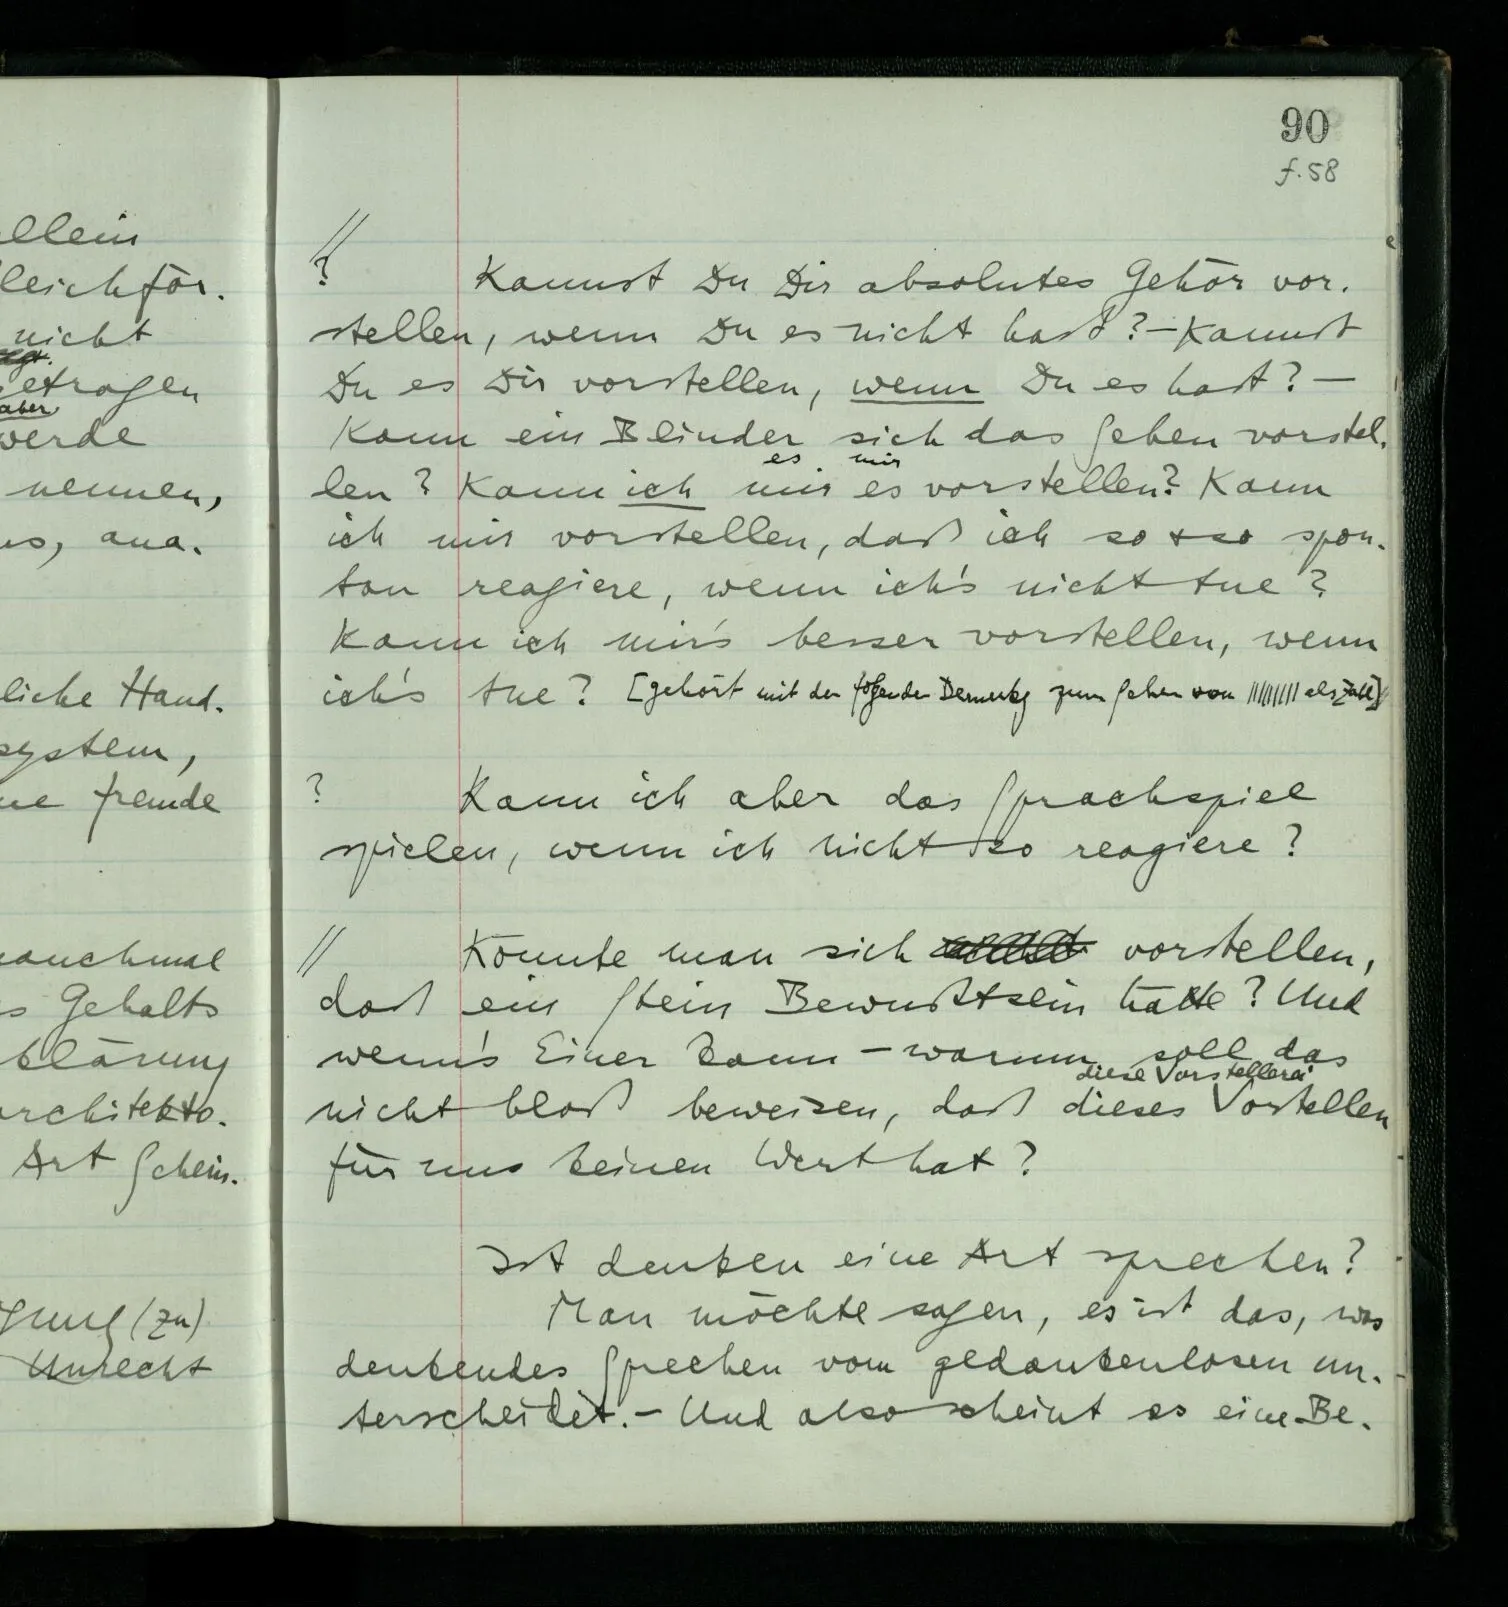 90
f. 58
ellein
leichför-
nicht
etragen
aber
werde
nennen,
us, ana-
liche Hand-
system,
ne fremde
manchmal
s Gehalts
klärung
architekto-
Art Schein-
gung (zu)
Unrecht
//
? Kannst Du Dir absolutes Gehör vor-
stellen, wenn Du es nicht hast? – Kannst
Du es Dir vorstellen, wenn Du es hast? –
Kann ein Blinder sich das Sehen vorstel-
es mir
len? Kann ich mir es vorstellen? Kann
ich mir vorstellen, daß ich so & so spon-
tan reagiere, wenn ich's nicht tue?
Kann ich mir's besser vorstellen, wenn
ich's tue? [gehört mit der folgenden Bemerkg zum Sehen von ||||||||| als Zahl]
? Kann ich aber das Sprachspiel
spielen, wenn ich nicht so reagiere?
// Könnte man sich vorstellen,
daß ein Stein Bewußtsein hätte? Und
wenn's Einer kann – warum soll das
diese Vorstellerei
nicht bloß beweisen, daß dieses Vorstellen
für uns keinen Wert hat?
Ist denken eine Art sprechen?
Man möchte sagen, es ist das, was
denkendes Sprechen vom gedankenlosen un-
terscheidet. – Und also scheint es eine Be-